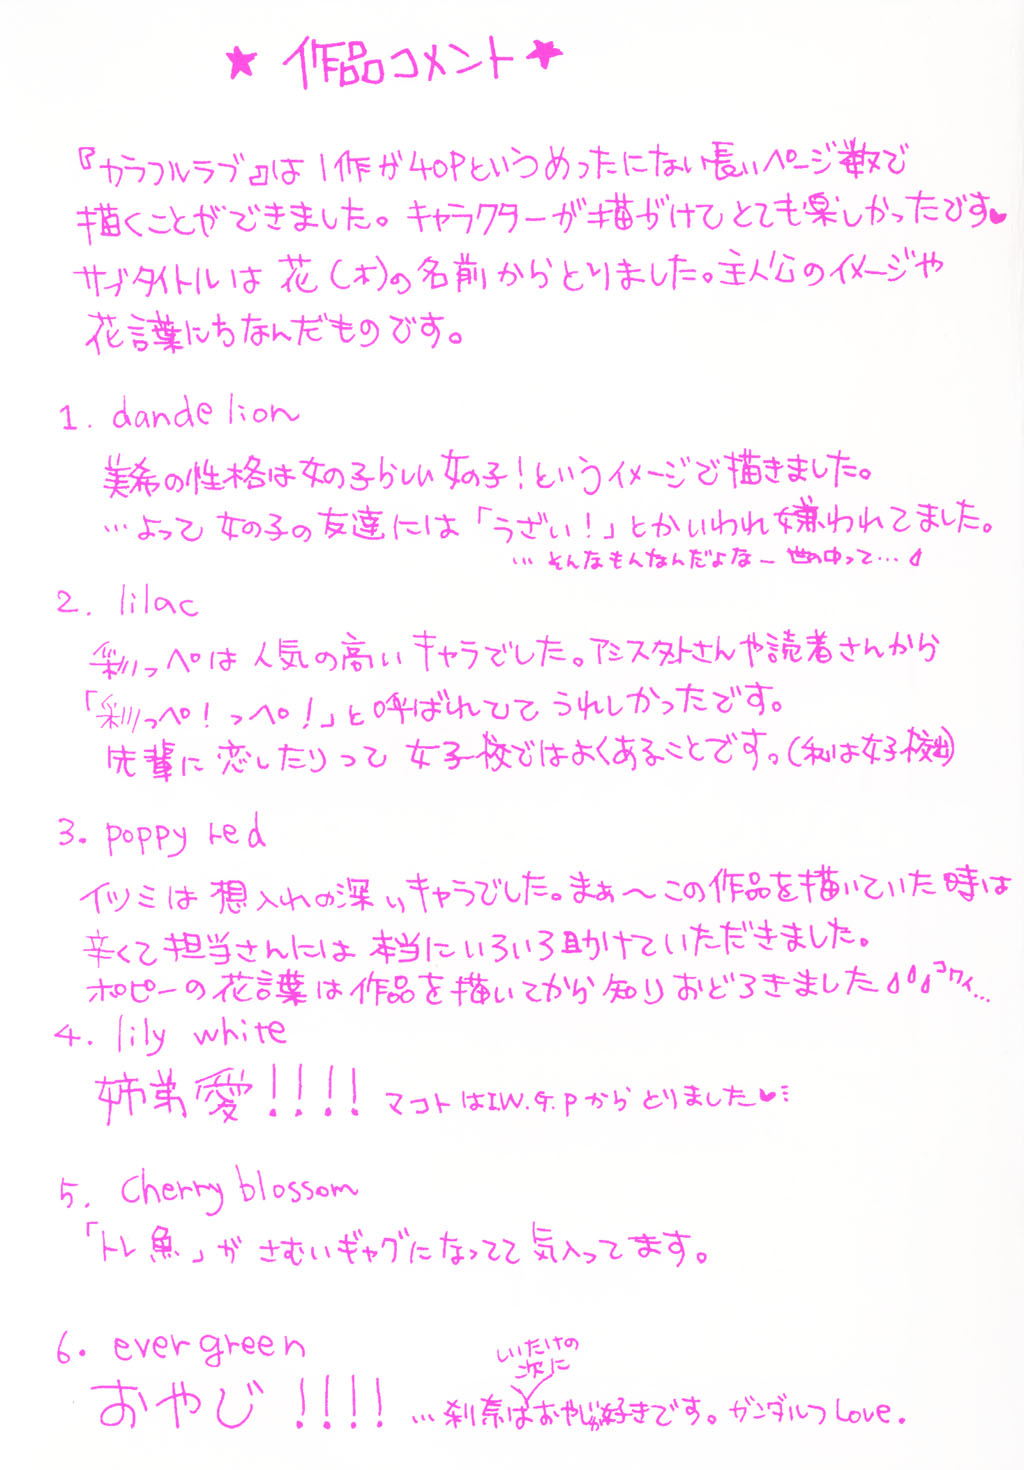 ★ 作品コメント ★
『カラフルラブ』は1作が40Pというめったにない長いページ数で
描くことができました。キャラクターが描かけてとても楽しかったです♥
サブタイトルは花(木)の名前からとりました。主人公のイメージや
花言葉にちなんだものです。
1. dandelion
美希の性格は女の子らしい女の子!というイメージで描きました。
…よって女の子の友達には「うざい!」とかいわれ嫌われてました。
…そんなもんなんだよなー世の中って…
2. lilac
彩っぺは人気の高いキャラでした。アシスタントさんや読者さんから
「彩っぺ!っぺ!」と呼ばれてて うれしかったです。
先輩に恋したりって 女子校ではよくあることです。(私は女子校出)
3. poppy red
イツミは想入れの深いキャラでした。まぁ〜この作品を描いていた時は
辛くて担当さんには本当にいろいろ助けていただきました。
ポピーの花言葉は作品を描いてから知りおどろきました コワイ…
4. lily white
姉弟愛!!!! マコトはI.W.G.Pからとりました♥
5. Cherry blossom
「トレ魚」がさむいギャグになってて気入ってます。
6. ever green
いたけの
次に
おやじ!!!! …刹奈はおやじが好きです。ガンダルフLove.